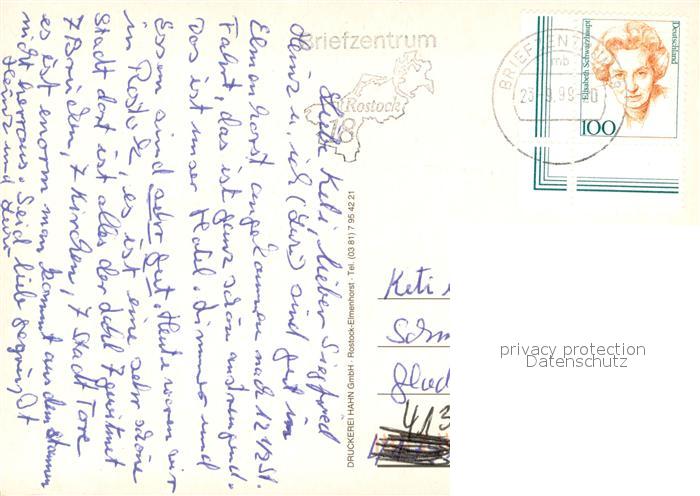 Briefzentrum
Rostock
18
BRIEFZENTRUM
mb
Elisabeth Schwarzhaupt
Deutschland
100
Liebe Keti, lieber Siegfried
Heinz u. ich (Lisa) sind gut in
Elmenhorst angekommen nach 12 1/2 St.
Fahrt, das ist ganz schön anstrengend.
Das ist unser Hotel. Zimmer und
Essen sind sehr gut. Heute waren wir
in Rostock, es ist eine sehr schöne
Stadt dort ist alles der Zahl 7 gewidmet
7 Brücken, 7 Kirchen, 7 Stadt Tore
es ist enorm man kommt aus dem Staunen
nicht herraus. Seid lieb gegrüßt
Heinz und
DRUCKEREI HAHN GmbH · Rostock-Elmenhorst · Tel. (03 81) 7 95 42 21
Keti
Schm
Glad
413
privacy protection
Datenschutz